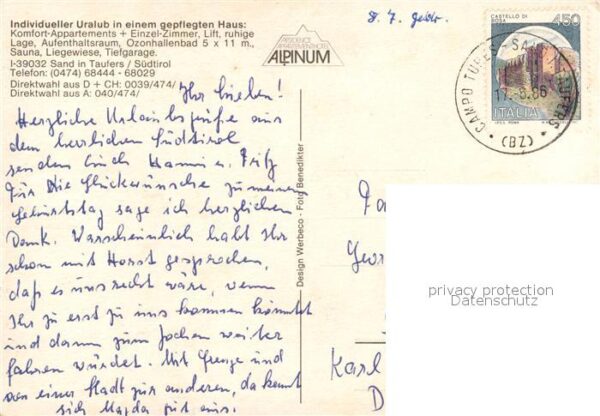 Individueller Uralub in einem gepflegten Haus:
Komfort-Appartements + Einzel-Zimmer, Lift, ruhige
Lage, Aufenthaltsraum, Ozonhallenbad 5 x 11 m.,
Sauna, Liegewiese, Tiefgarage.
I-39032 Sand in Taufers / Südtirol
Telefon: (0474) 68444 - 68029
Direktwahl aus D + CH: 0039/474/
Direktwahl aus A: 040/474/
RESIDENCE
APPARTEMENTHOTEL
ALPINUM
8. 7.
CASTELLO DI
ROSA
450
ITALIA
CAMPO TURES - SAND
17. 6. 86
(BZ)
Ihr Lieben!
Herzliche Urlaubsgrüße aus
dem herrlichen Südtirol
senden Euch Hanni u. Fritz
Für Die Glückwünsche zu meinem
Geburtstag sage ich herzlichen
Dank. Warscheinlich habt Ihr
schon mit Horst gesprochen,
daß es uns recht wäre, wenn
Ihr zu erst zu uns kommen könntet
und dann zum Jochen weiter
fahren würdet. Mit Grenze und
von einer Stadt zur anderen, da kennt
sich Magda gut aus.
Design Werbeco - Foto Benedikter
Fa
Geor
Karl
D
privacy protection
Datenschutz